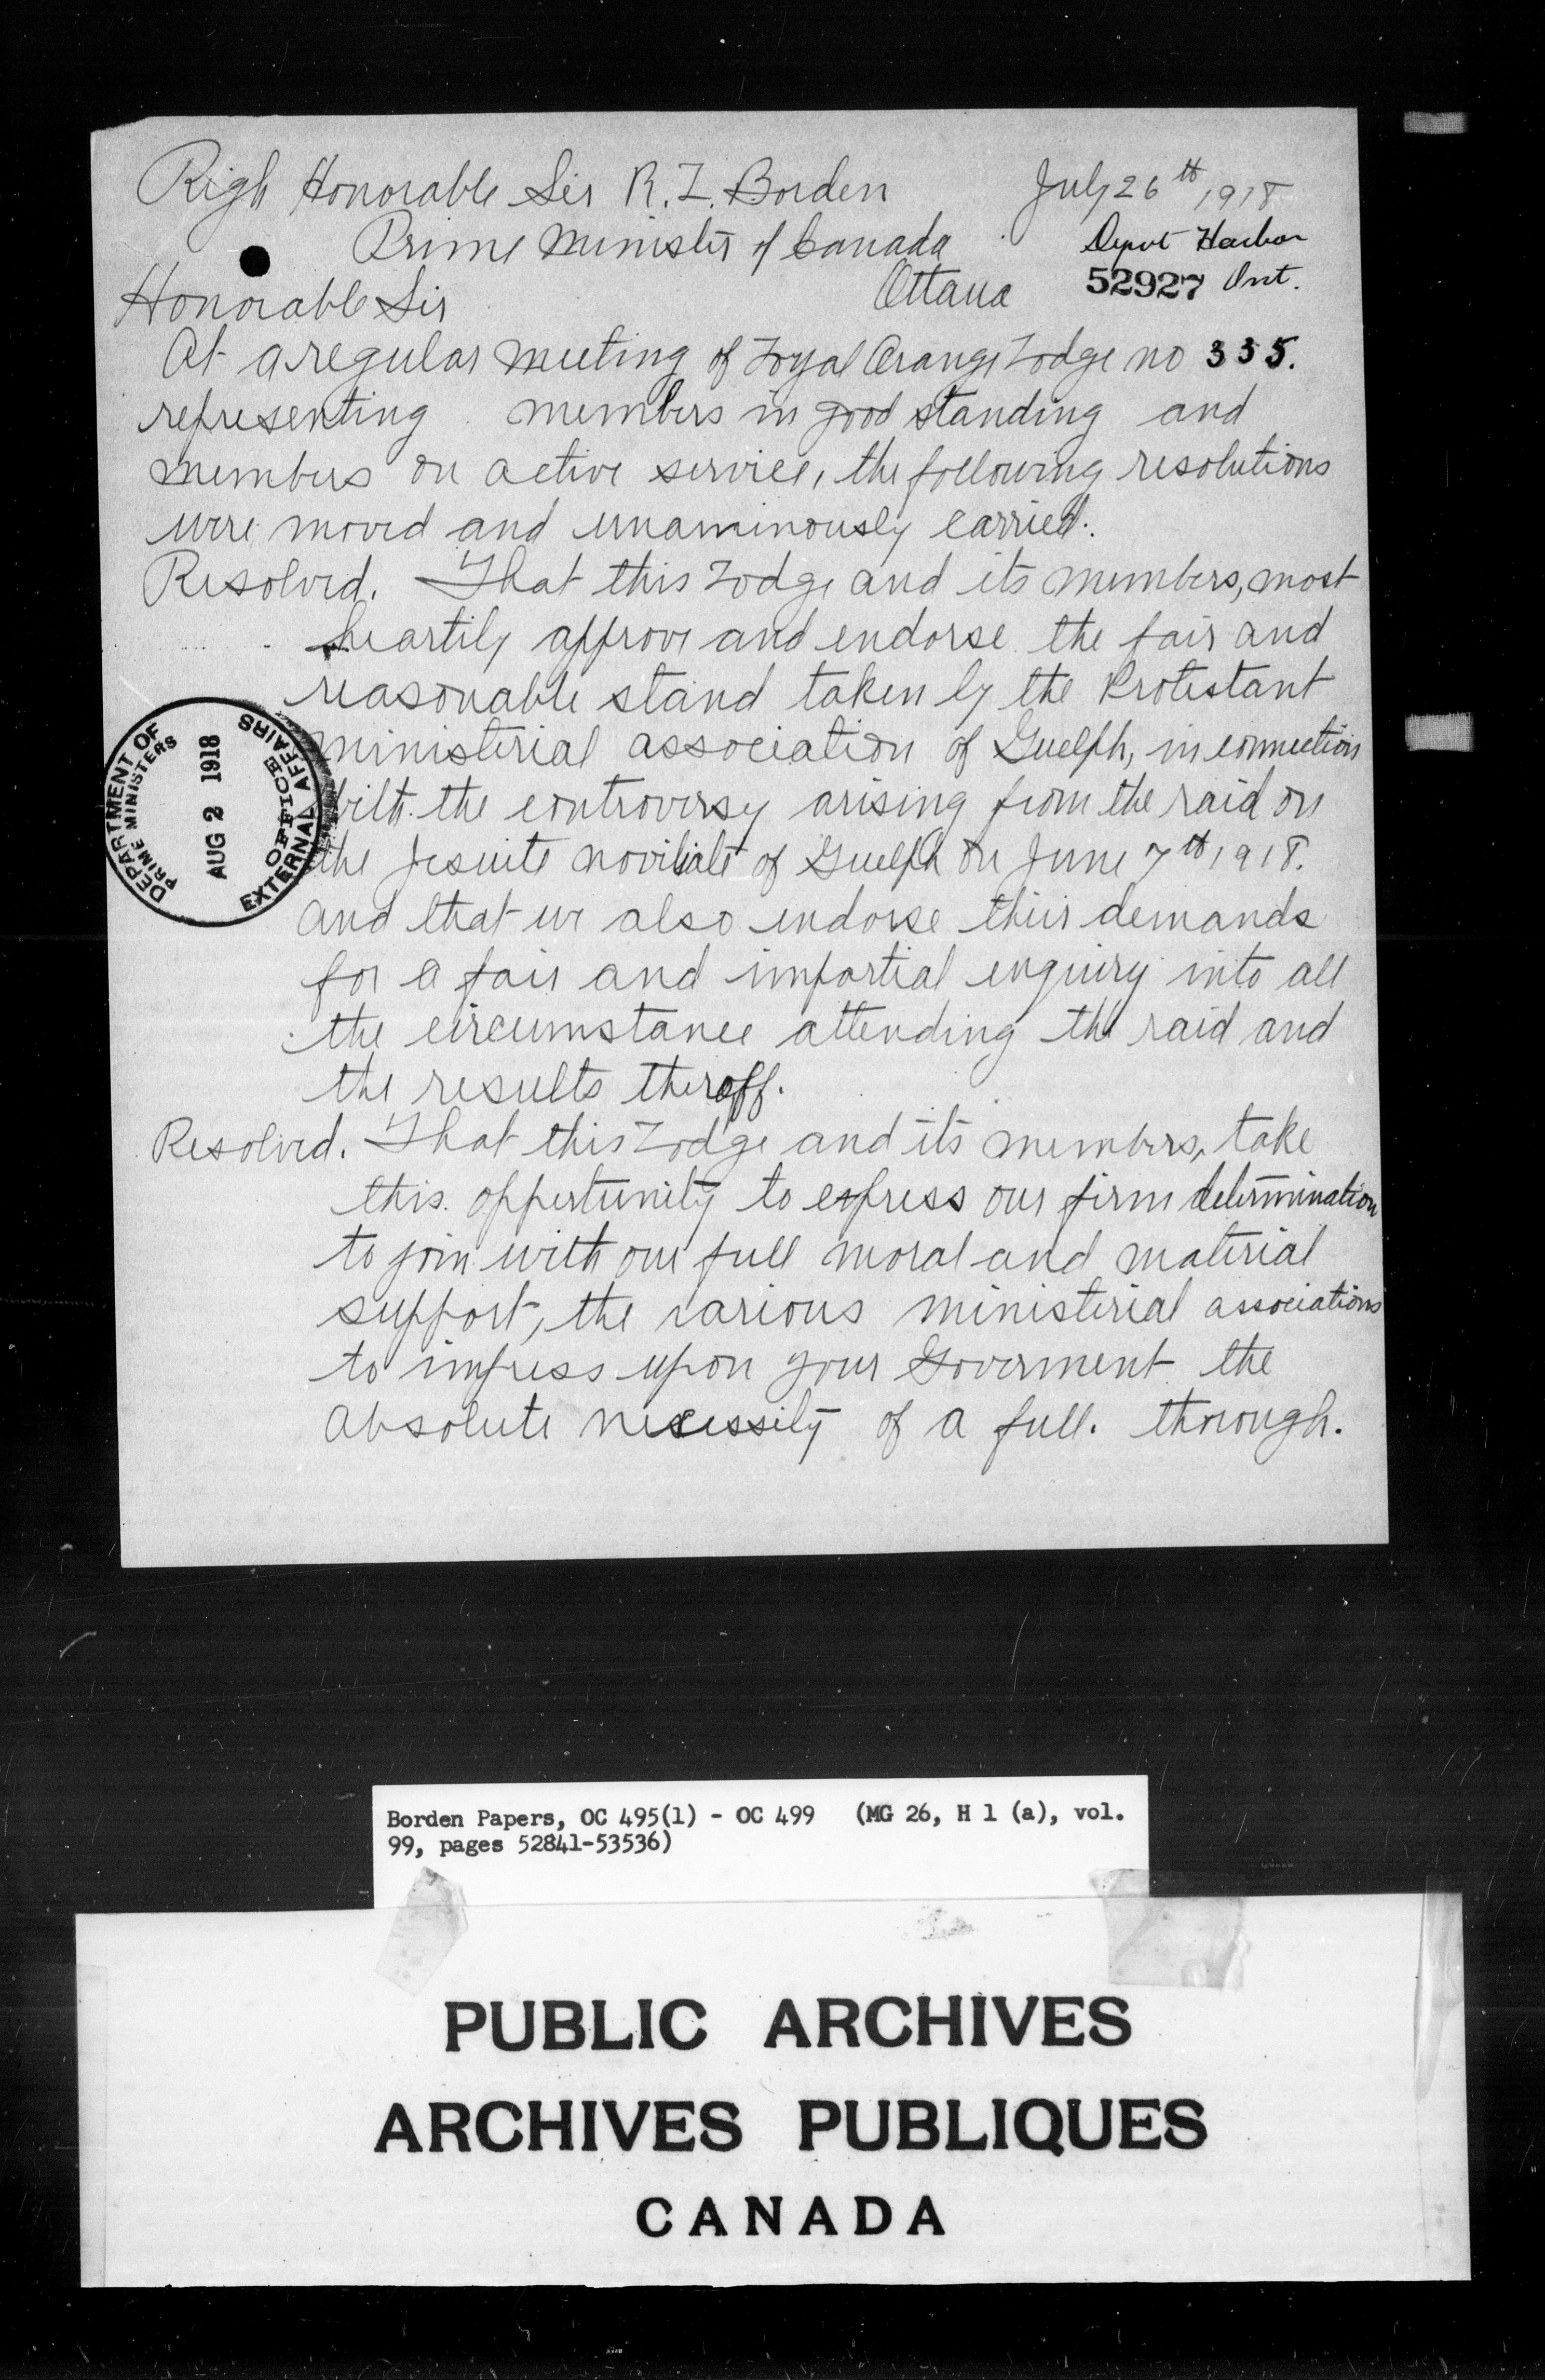 Righ Honorable Sir R. L. Borden July 26th, 1918
Prime Minister of Canada Depot Harbor
Ottawa 52927 Ont.
Honorable Sir
At a regular meeting of Loyal Orange Lodge no 335.
representing members in good standing and
members on active service, the following resolutions
were moved and unaminously carried.
Resolved. That this Lodge and its members, most
heartily approve and endorse the fair and
reasonable stand taken by the Protestant
ministerial association of Guelph, in connection
with the controversy arising from the raid on
the Jesuits noviciate of Guelph on June 7th 1918.
and that we also endorse their demands
for a fair and impartial enquiry into all
the circumstance attending the raid and
the results theroff.
Resolved. That this Lodge and its members, take
this oppertunity to express our firm determination
to join with our full moral and material
support, the various ministerial associations
to impress upon your Goverment the
absolute necessity of a full. thorough.
DEPARTMENT OF
PRIME MINISTERS
AUG 2 1918
OFFICE
EXTERNAL AFFAIRS
Borden Papers, OC 495(1) - OC 499 (MG 26, H 1 (a), vol.
99, pages 52841-53536)
PUBLIC ARCHIVES
ARCHIVES PUBLIQUES
CANADA